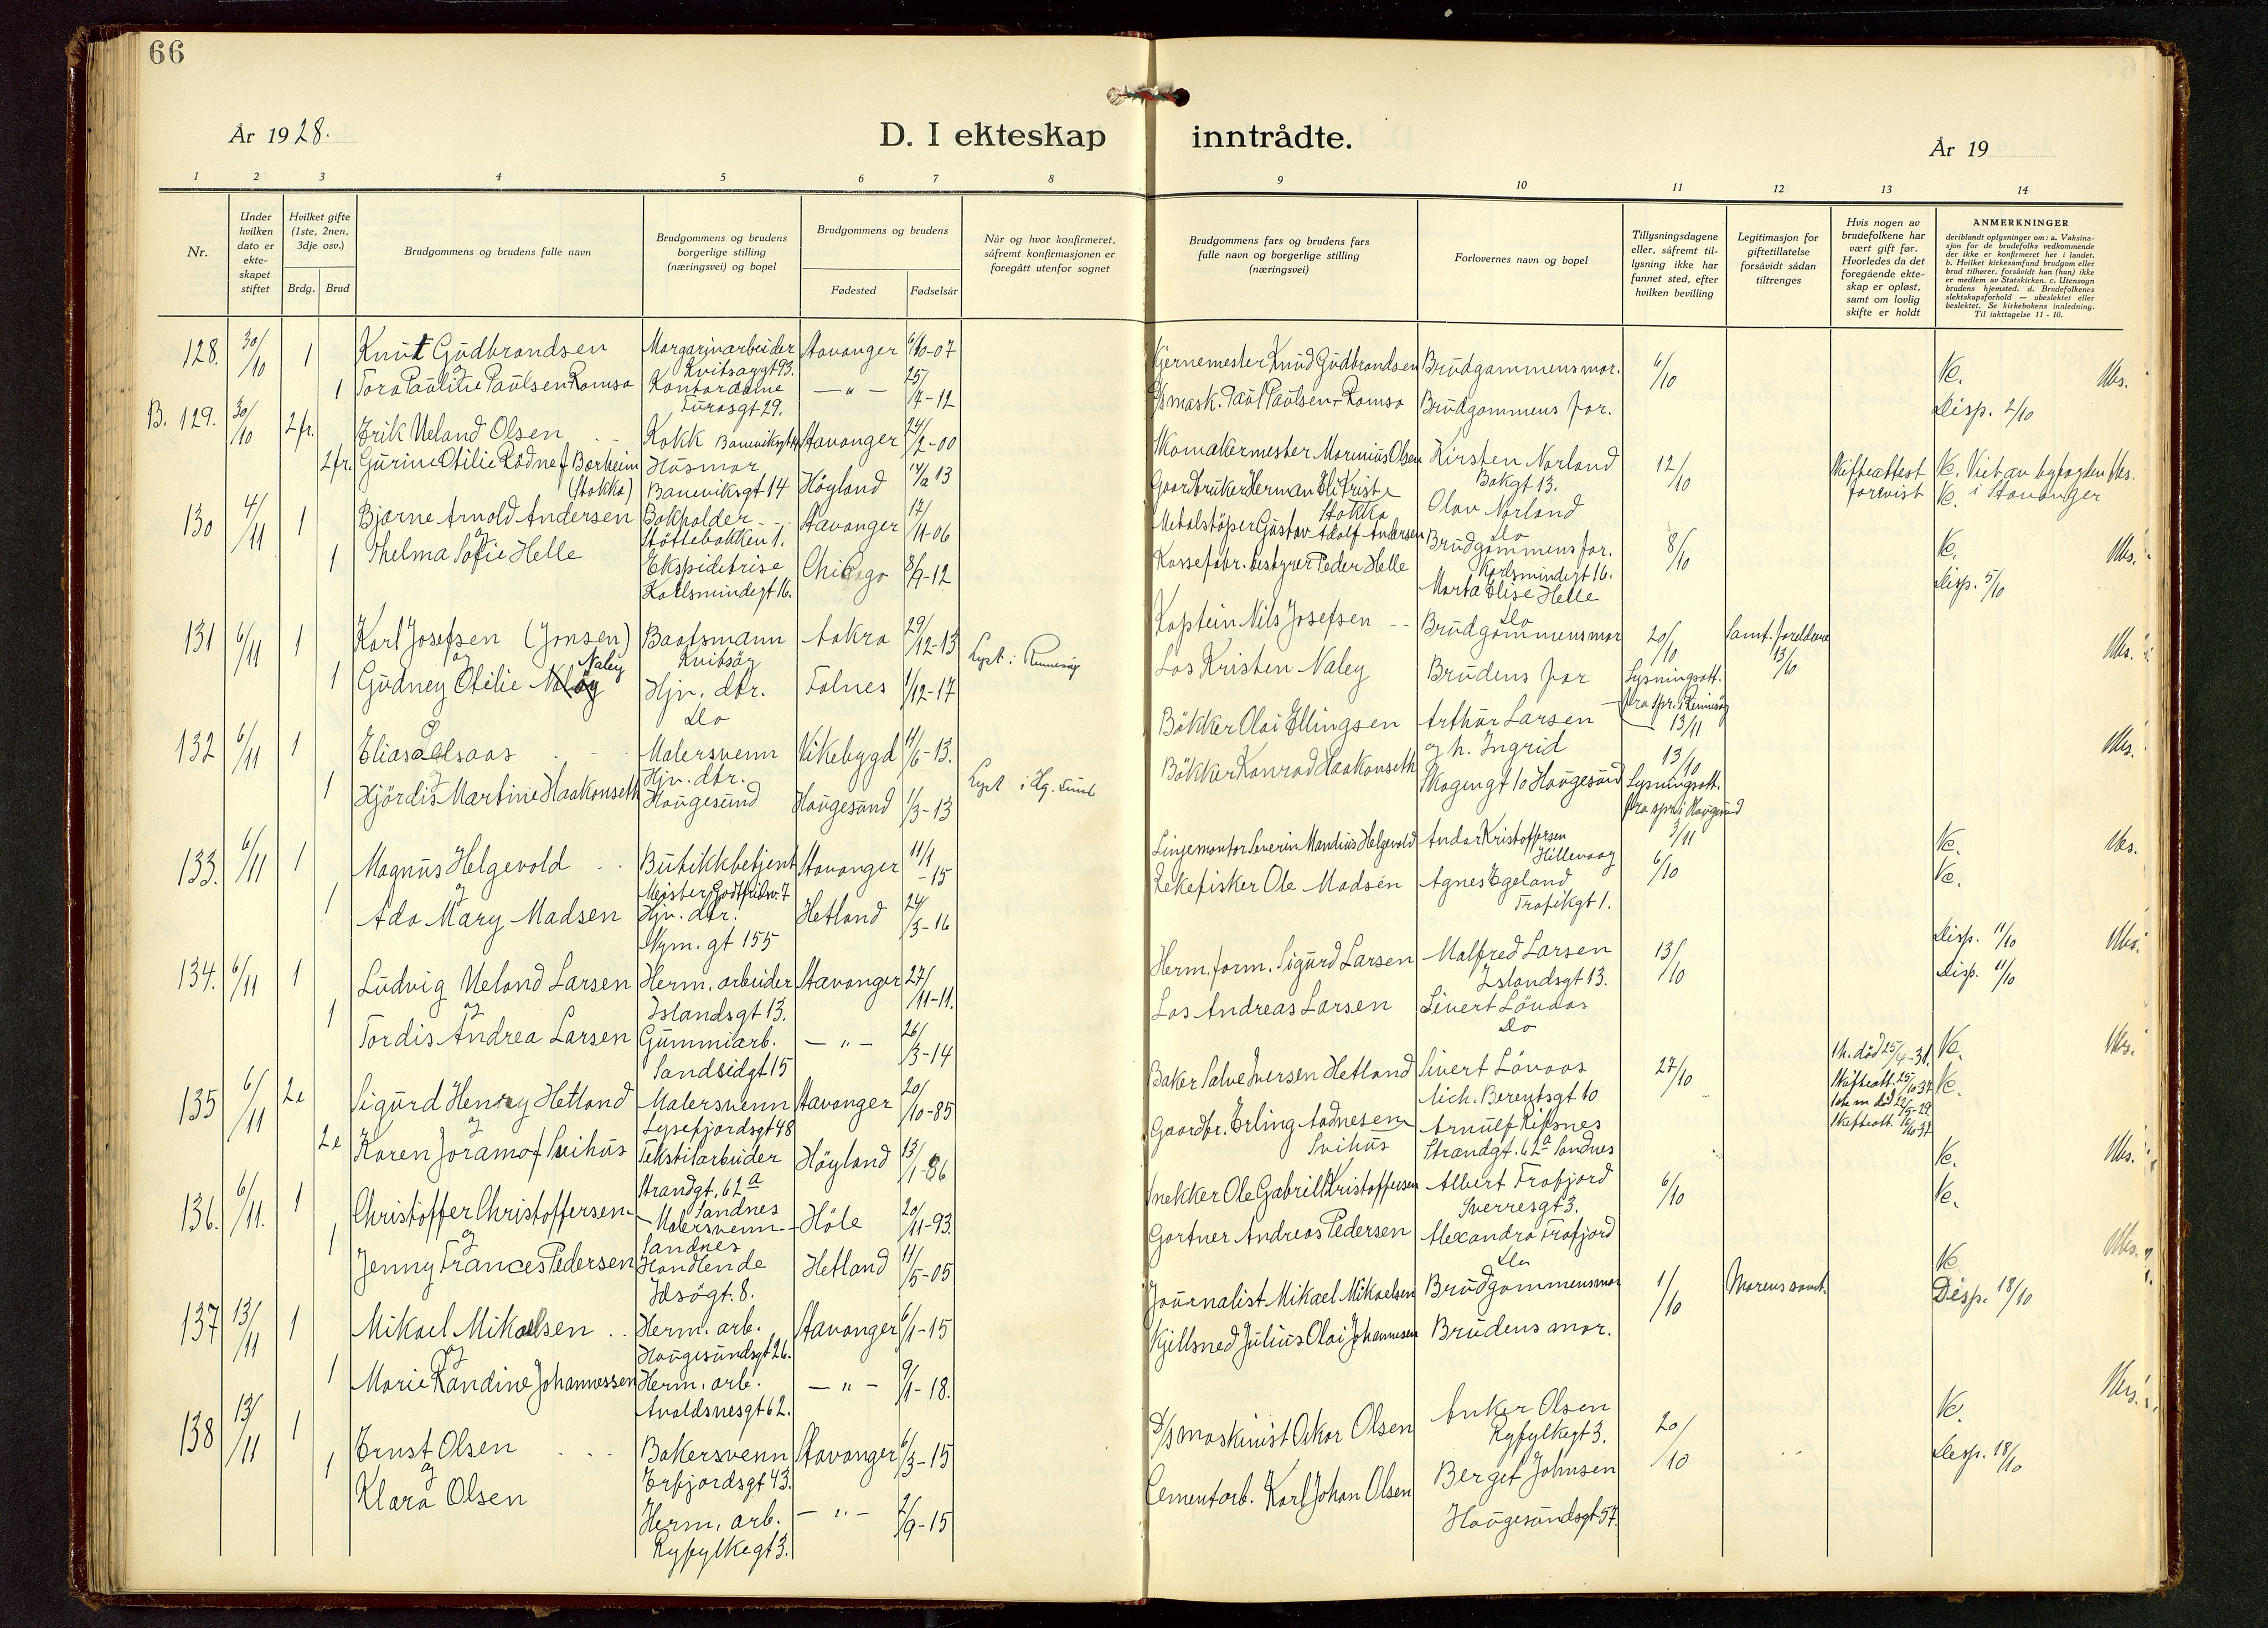 66
År 1928.
D. I ekteskap inntrådte.
År 19
1 2 3 4 5 6 7 8 9 10 11 12 13 14
Nr.
Under hvilken dato er ekteskapet stiftet
Hvilket gifte (1ste, 2nen, 3dje osv.)
Brdg. Brud
Brudgommens og brudens fulle navn
Brudgommens og brudens borgerlige stilling (næringsvei) og bopel
Brudgommens og brudens
Fødested Fødselsår
Når og hvor konfirmeret, såfremt konfirmasjonen er foregått utenfor sognet
Brudgommens fars og brudens fars fulle navn og borgerlige stilling (næringsvei)
Forlovernes navn og bopel
Tillysningsdagene eller, såfremt tillysning ikke har funnet sted, efter hvilken bevilling
Legitimasjon for giftetillatelse forsåvidt sådan tiltrenges
Hvis nogen av brudefolkene har vært gift før. Hvorledes da det foregående ekteskap er opløst, samt om lovlig skifte er holdt
ANMERKNINGER
deriblandt oplysninger om: a. Vaksinasjon for de brudefolks vedkommende der ikke er konfirmeret her i landet. b. Hvilket kirkesamfund brudgom eller brud tilhører, forsåvidt han (hun) ikke er medlem av Statskirken. c. Utensogn brudens hjemsted. d. Brudefolkenes slektskapsforhold — ubeslektet eller beslektet. Se kirkebokens innledning. Til iakttagelse 11 - 10.
128. 30/10 1 Knut Gudbrandsen Margarinarbeider Stavanger 6/10-07 Kjernemester Knud Gudbrandsen Brudgommens mor. 6/10 Ve.
og
1 Tora Pauline Paulsen Romsa Kontordame — " — 25/7-12 D/S mask. Paul Paulsen Romsa Brudgommens far. Disp. 2/10
Turasgt 29.
B. 129. 30/10 2 fr. Erik Ueland Olsen Kokk Stavanger 24/2-00 Skomakermester Marenius Olsen Kirsten Norland 12/10 Skifteattest forevist Ve. Viet av byfogden
Bokgt 13.
2 fr. Gurine Otilie Rödne f. Borheim Husmor Höyland Gaardbruker Herman Eli Krist. Olav Norland Ve. i Stavanger
(Stokka) Banevikgt 14 Stokka Do
130 4/11 1 Bjarne Arnold Andersen Bokholder Stavanger 17/11-06 Metalstöper Gustav Adolf Andersen Brudgommens far. 8/10 Ve.
og Stöttebakken 1. Karlsmindegt 16.
1 Thelma Sofie Helle Ekspiditrise Chicago 8/9-12 bestyrer Peder Helle Marta Elise Helle Disp. 5/10
Karlsmindegt 16. Do
131 6/11 1 Karl Josefsen (Jonsen) Baatsmann Aakra 29/12-13 Kaptein Nils Josefsen Brudgommens mor 20/10 Samt. foreldrene 13/10
og Kvitsöy Lyst i Rennesöy
1 Gudney Otilie Naley Hjv. dtr. Falnes 1/12-17 Los Kristen Naley Brudens far Lysningsatt. fra spr. i Rennesöy 13/11
Do
132 6/11 1 Elias Oelsaas Malersvenn Vikebygd 11/6-13. Bökker Olai Ellingsen Arthur Larsen 13/10
og Hjv. dtr. og h. Ingrid Lyst i Hg. sund
1 Hjördis Martine Haakonseth Haugesund Haugesund 1/3-13 Bökker Konrad Haakonseth Skogengt 10 Haugesund Lysningsatt. fra spr. i Haugesund 3/11
133. 6/11 1 Magnus Helgevold Butikkbetjent Stavanger 11/1-15 Linjemontør Severin Mandius Helgevold Andor Kristoffersen 6/10 Ve.
og Hillevaag
1 Ada Mary Madsen Hjv. dtr. Hetland 24/3-16 Ole Madsen Agnes Egeland Ve.
Nym. gt 155 Trafikgt 1.
134. 6/11 1 Ludvig Ueland Larsen Herm. arbeider Stavanger 27/11-11. Herm. form. Sigurd Larsen Malfred Larsen 13/10 Disp. 11/10
og Islandsgt 13. Islandsgt 13.
1 Tordis Andrea Larsen Gummiarb. — " — 26/3-14 Los Andreas Larsen Sivert Lövaas Disp. 11/10
Sandeidgt 15 Do
135 6/11 2e Sigurd Henry Hetland Malersvenn Stavanger 20/10-85 Baker Salve Iversen Hetland Sivert Lövaas 27/10 1 h. död 25/4-31. Ve.
og Lysefjordsgt 48 Mich. Berentsgt 10 Skifteatt. 25/10-37
2e Karen Joramo f. Svihus Tekstilarbeider Höyland 13/1-86 Gaardbr. Erling Aadnesen Svihus Arnulf Refsnes Ve.
Strandgt. 62a Sandnes Strandgt. 62a Sandnes
136. 6/11. 1 Christoffer Christoffersen Malersvenn Höle 20/11-93. Snekker Ole Gabriel Kristoffersen Albert Frafjord 6/10 Ve.
og Sandnes Sverresgt 3.
1 Jenny Frances Pedersen Handlende Hetland 11/5-05 Gartner Andreas Pedersen Alexandra Frafjord Ve.
Idsögt. 8. Do
137 13/11 1 Mikael Mikaelsen Herm. arb. Stavanger 6/1-15 Journalist Mikael Mikaelsen Brudgommens mor 1/10 Morens samt. Ve
og Haugesundsgt 26.
1 Marie Randine Johannessen Herm. arb. — " — 9/1-18. Kjillsned Julius Olai Johannesen Brudens mor. Disp. 18/10
Avaldsnesgt 62.
138 13/11 1 Ernst Olsen Bakersvenn Stavanger 6/3-15 D/S maskinist Oskar Olsen Anker Olsen 20/10 Ve.
og Erfjordsgt 43. Ryfylkegt 3.
1 Klara Olsen Herm. arb. — " — 2/9-15 Cementarb. Karl Johan Olsen Berget Johnsen Disp. 18/10
Ryfylkegt 3. Haugesundsgt 57.